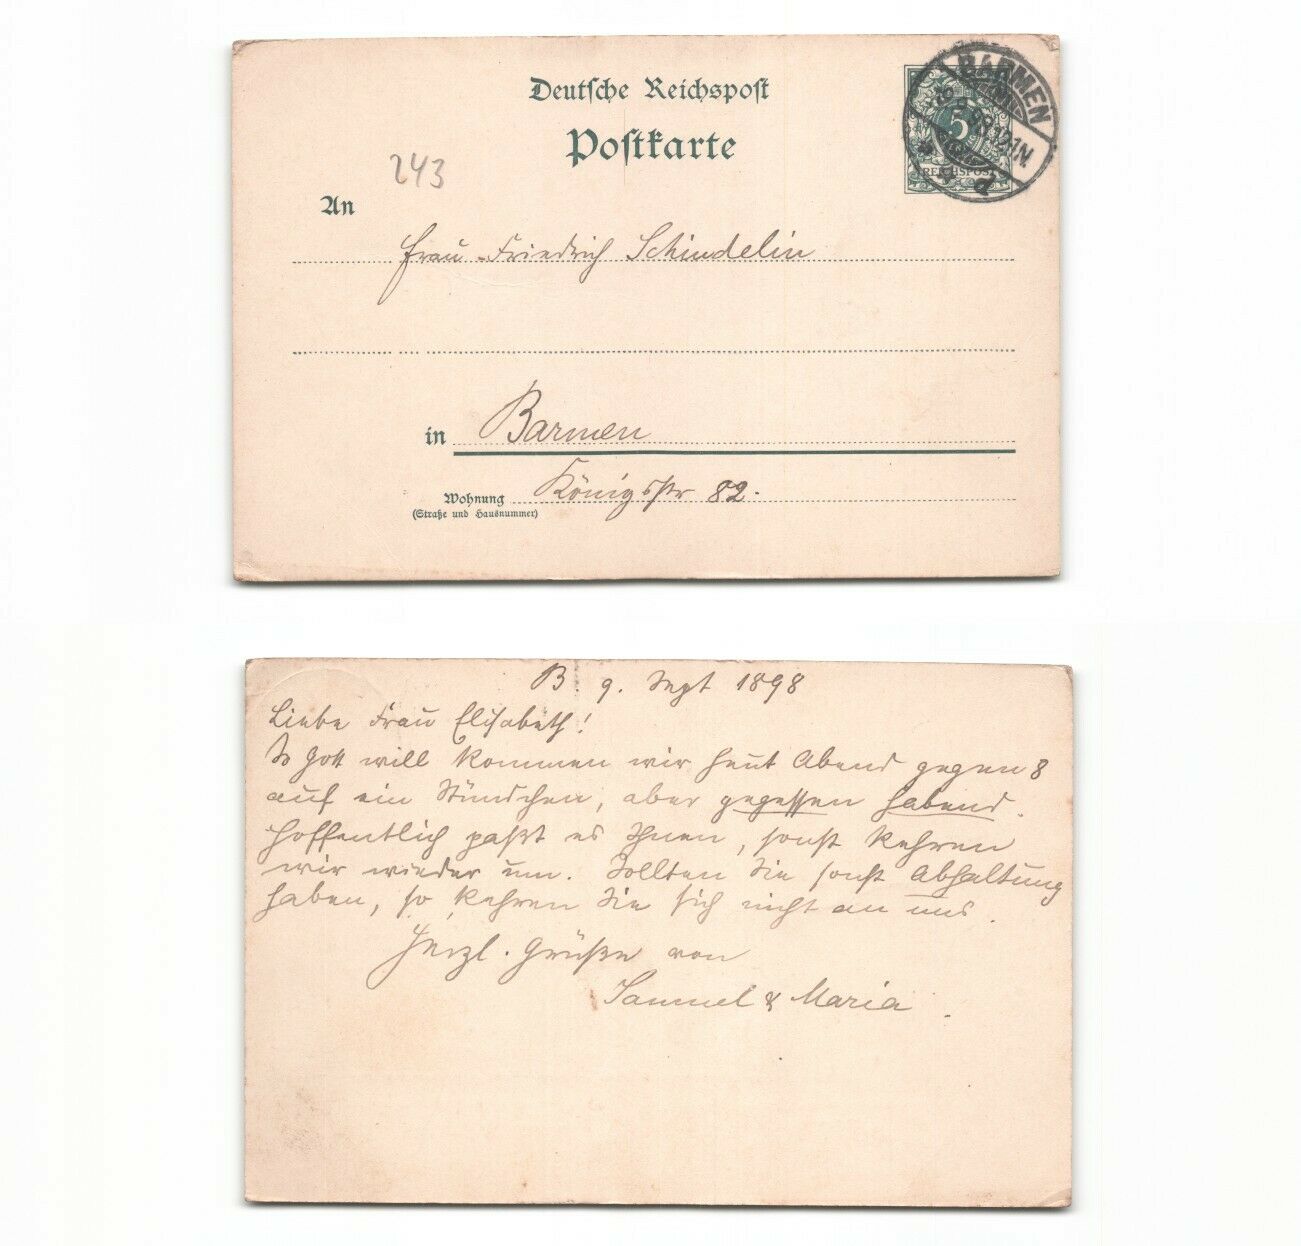 Deutsche Reichspost
Postkarte
BARMEN
5
REICHSPOST
98.12-1N
243
An
Frau Friedrich Schindelin
in Barmen
Wohnung Königsstr 82.
(Straße und Hausnummer)
B 9. Sept 1898
Liebe Frau Elisabeth!
So Gott will kommen wir heut Abend gegen 8
auf ein Stündchen, aber gegessen habend.
Hoffentlich paßt es Ihnen, sonst kehren
wir wieder um. Sollten Sie sonst Abhaltung
haben, so kehren Sie sich nicht an uns.
Herzl. Grüße von
Samuel & Maria.